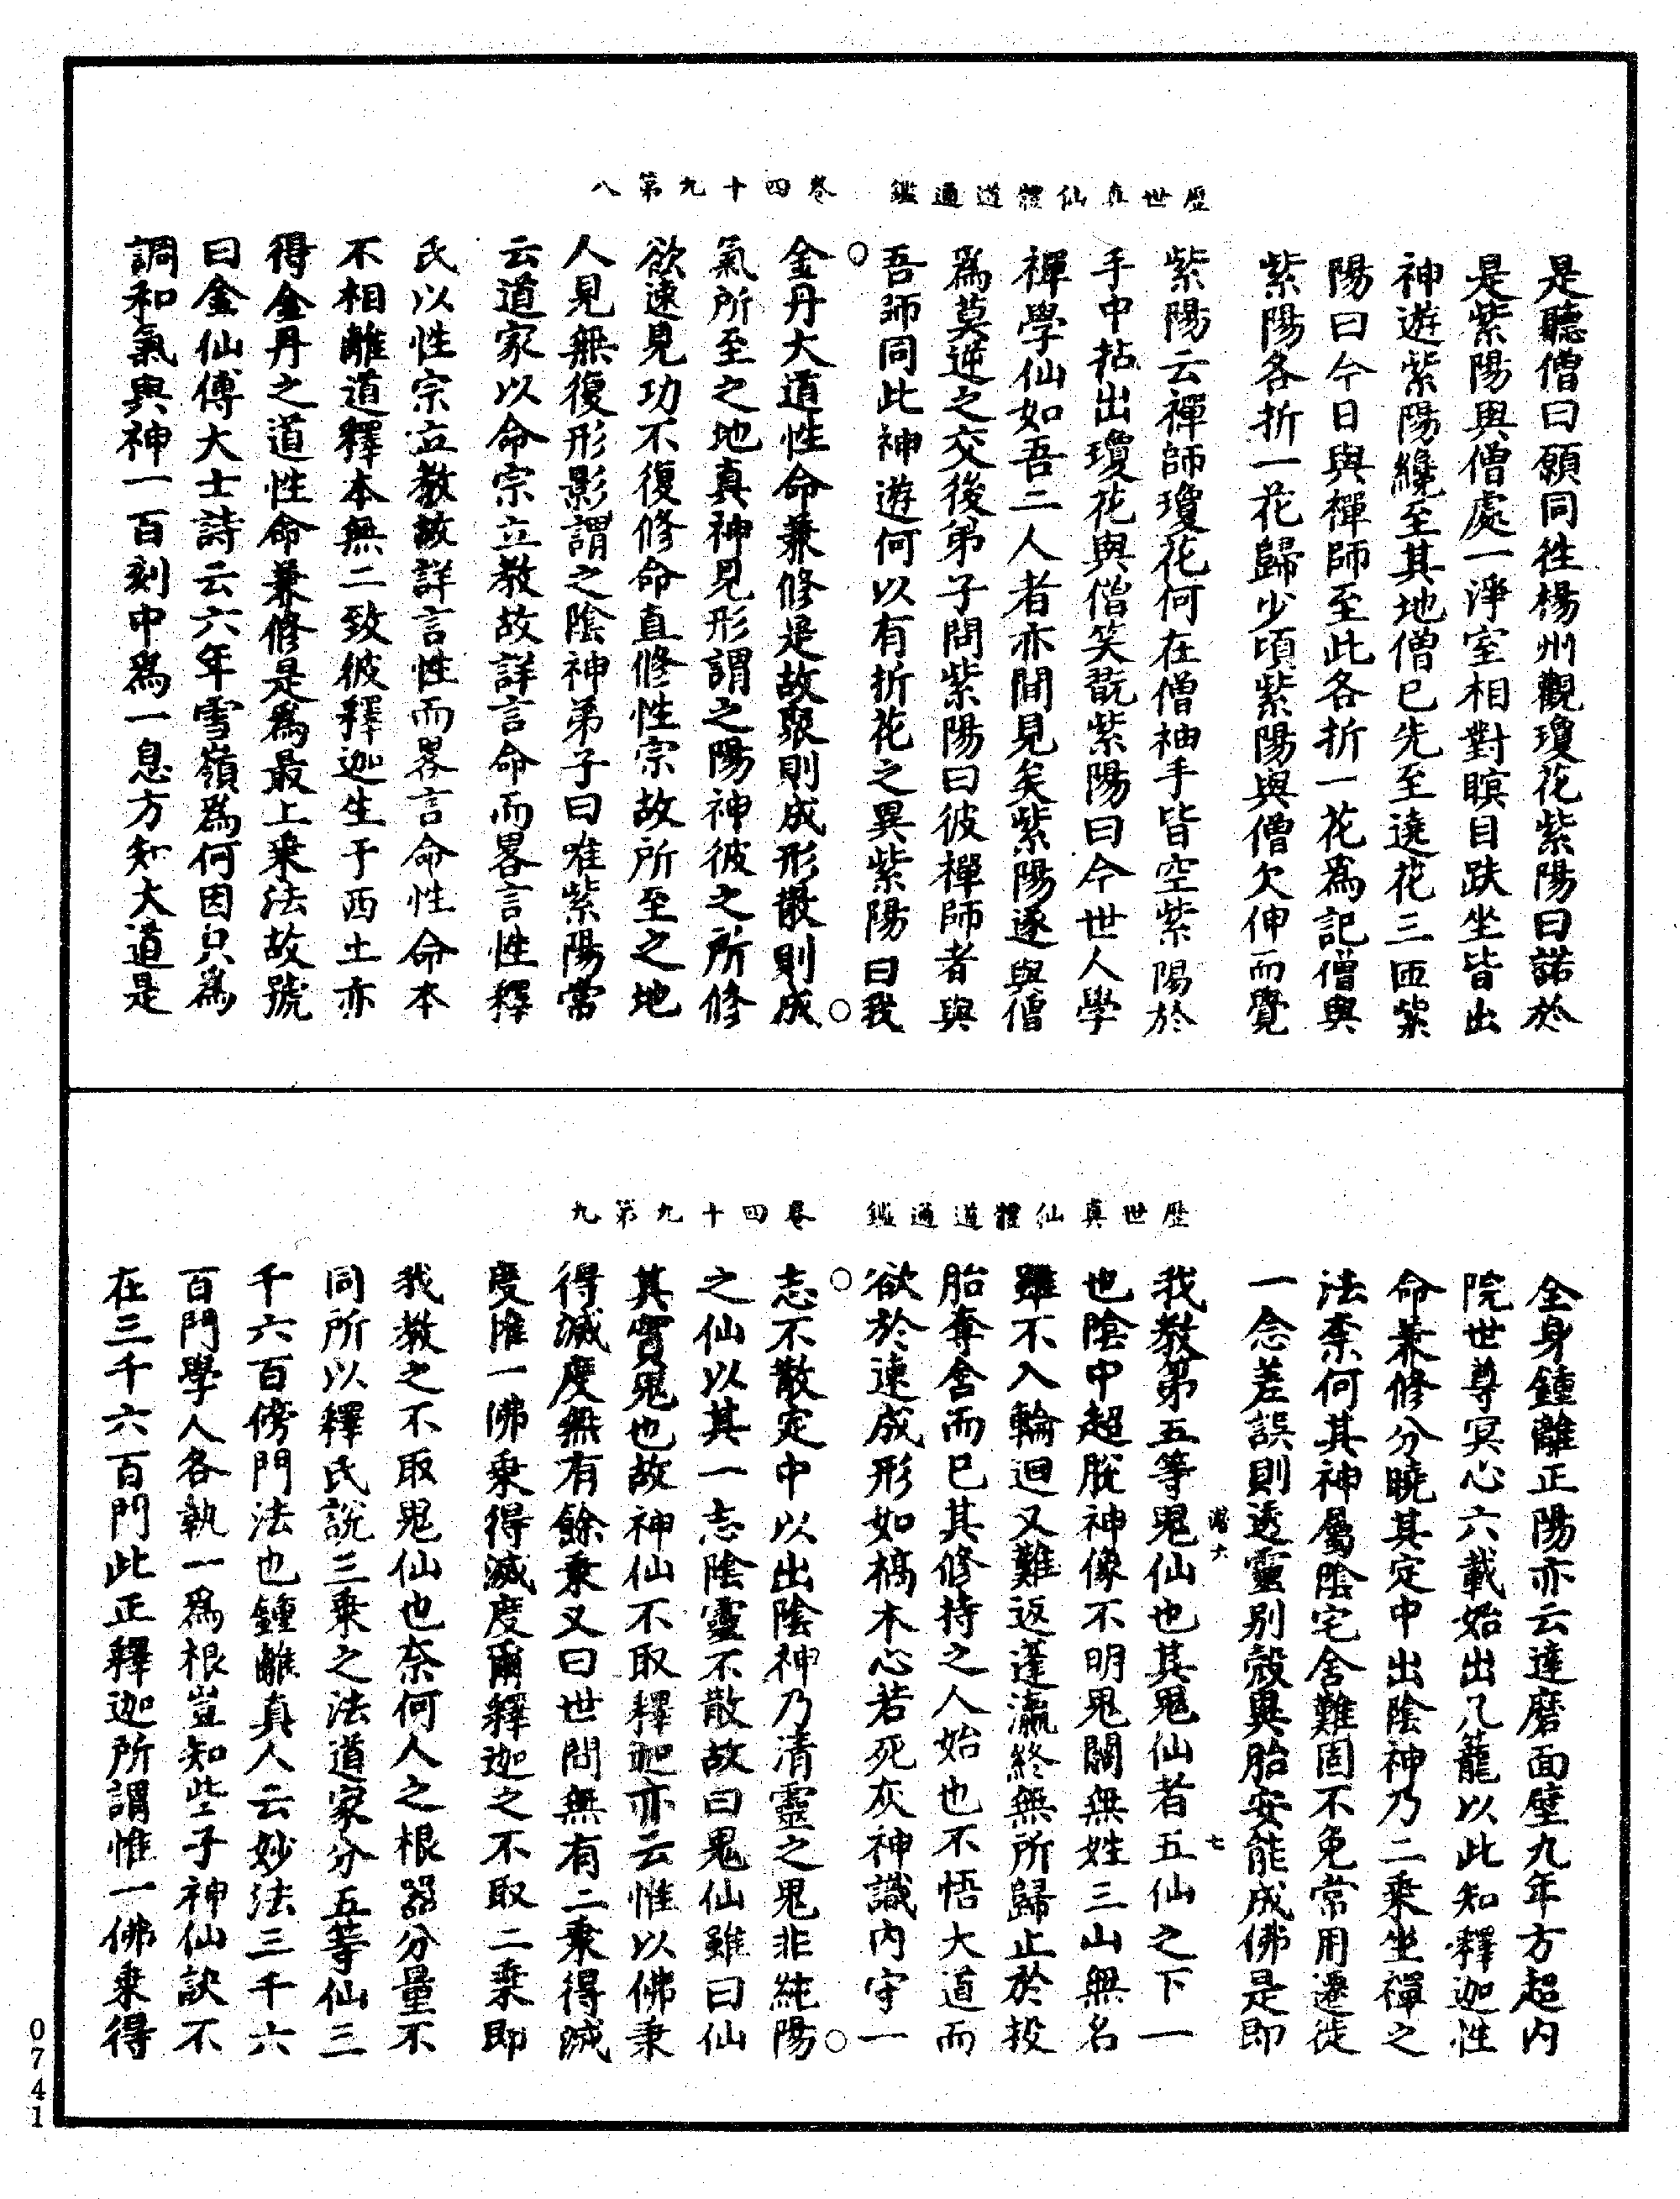 歷世真仙體道通鑑　卷四十九第八
是聽僧曰願同徃楊州觀瓊花紫陽曰諾於
是紫陽與僧處一淨室相對瞑目趺坐皆出
神遊紫陽纔至其地僧已先至遶花三匝紫
陽曰今日與禪師至此各折一花爲記僧與
紫陽各折一花歸少頃紫陽與僧欠伸而覺
紫陽云禪師瓊花何在僧袖手皆空紫陽於
手中拈出瓊花與僧笑翫紫陽曰今世人學
禪學仙如吾二人者亦間見矣紫陽遂與僧
爲莫逆之交後弟子問紫陽曰彼禪師者與
吾師同此神遊何以有折花之異紫陽曰我
金丹大道性命兼修是故聚則成形散則成
氣所至之地真神見形謂之陽神彼之所修
欲速見功不復修命直修性宗故所至之地
人見無復形影謂之陰神弟子曰唯紫陽常
云道家以命宗立教故詳言命而畧言性釋
氏以性宗立教故詳言性而畧言命性命本
不相離道釋本無二致彼釋迦生于西土亦
得金丹之道性命兼修是爲最上乗法故號
曰金仙傅大士詩云六年雪嶺爲何因只爲
調和氣與神一百刻中爲一息方知大道是
歷世真仙體道通鑑　卷四十九第九
全身鍾離正陽亦云達磨面壁九年方超內
院世尊冥心六載始出凡籠以此知釋迦性
命兼修分曉其定中出陰神乃二乗坐禪之
法柰何其神屬陰宅舍難固不免常用遷徙
一念差誤則透靈別殼異胎安能成佛是即
我教第五等鬼仙也其鬼仙者五仙之下一
也陰中超脫神像不明鬼關無姓三山無名
雖不入輪迴又難返蓬瀛終無所歸止於投
胎奪舍而已其修持之人始也不悟大道而
欲於速成形如槁木心若死灰神識內守一
志不散定中以出陰神乃清靈之鬼非純陽
之仙以其一志陰靈不散故曰鬼仙雖曰仙
其實鬼也故神仙不取釋迦亦云惟以佛乗
得滅度無有餘乗又曰世間無有二乗得滅
度惟一佛乗得滅度爾釋迦之不取二乗即
我教之不取鬼仙也奈何人之根器分量不
同所以釋氏說三乗之法道家分五等仙三
千六百傍門法也鍾離真人云妙法三千六
百門學人各執一爲根豈知些子神仙訣不
在三千六百門此正釋迦所謂惟一佛乗得
六
七
0741